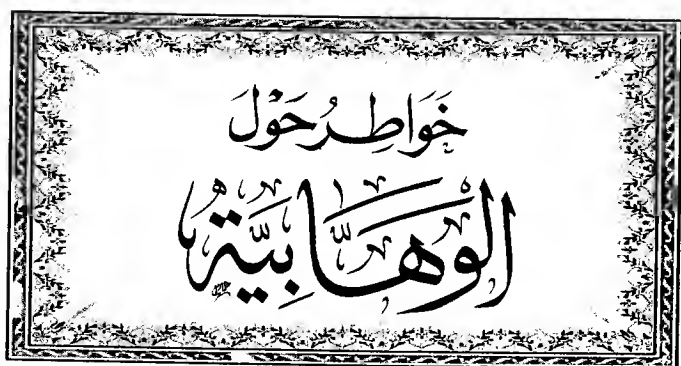 خَوَاطِرُ حَوْلَ
الوَهَّابِيَّةِ